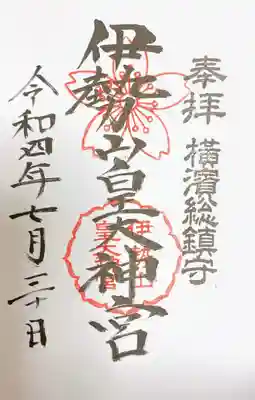 奉拝 橫濱総鎮守
伊勢山皇大神宮
伊勢山
皇大神宮
令和四年七月三十日